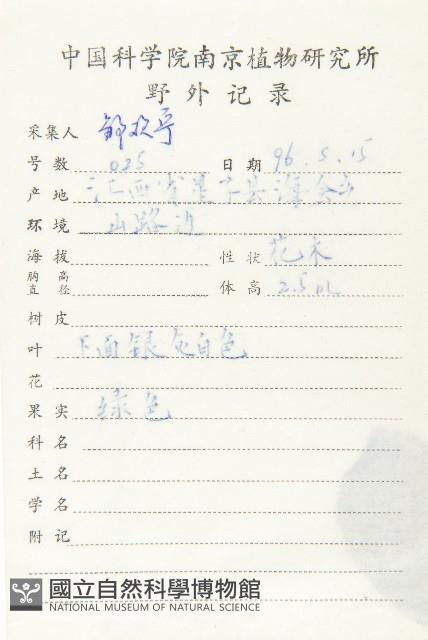 中国科学院南京植物研究所
野外记录
采集人
号数 025 日期 96.5.15
产地 江西省星子县海会
环境 山路边
海拔 性状
胸高直径 体高 2.5m
树皮
叶 下面银灰白色
花
果实 绿色
科名
土名
学名
附记
國立自然科學博物館
NATIONAL MUSEUM OF NATURAL SCIENCE